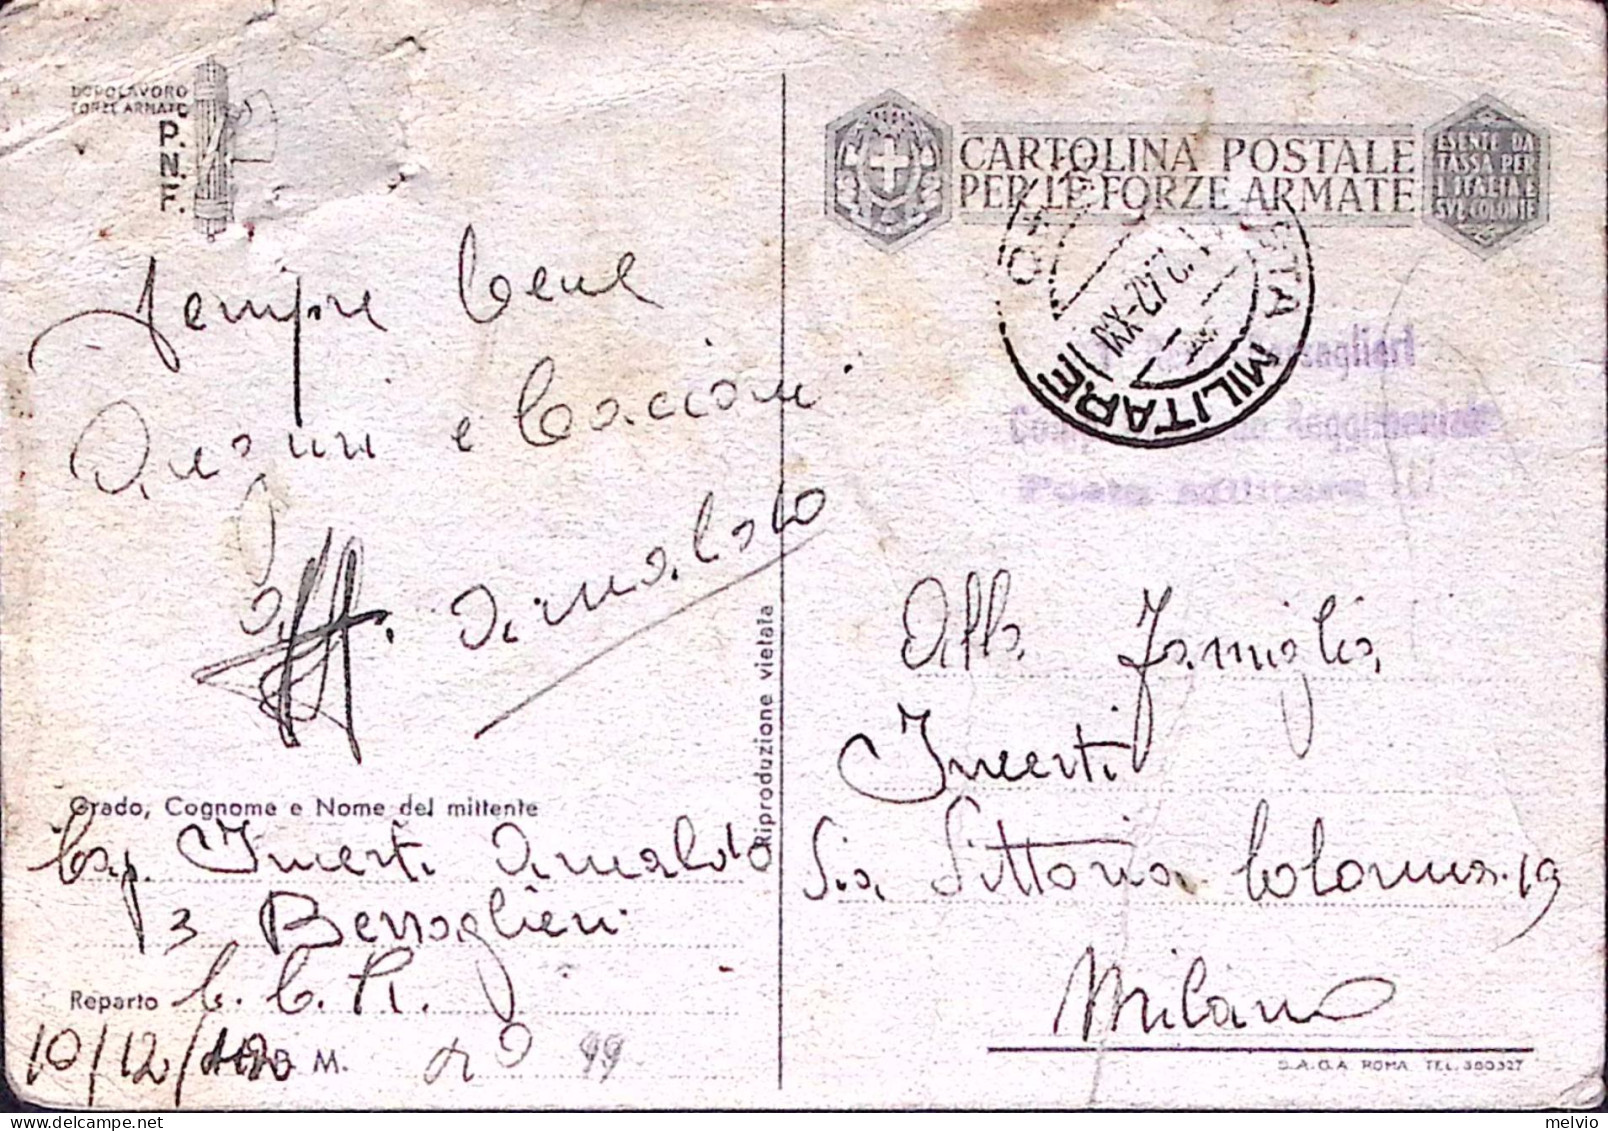 DOPOLAVORO
FORZE ARMATE
P.
N.
F.
CARTOLINA POSTALE
PER LE FORZE ARMATE
ESENTE DA
TASSA PER
L'ITALIA E
SUE COLONIE
POSTA MILITARE
12.42-XXI
Bersaglieri
Reggimentale
Posta militare
Sempre bene
Auguri e bacioni
Arnaldo
Riproduzione vietata
Alla Famiglia
Incerti
Via Vittoria Colonna. 19
Milano
Grado, Cognome e Nome del mittente
Cap. Incerti Arnaldo
3 Bersaglieri
Reparto C. C. R.
10/12/42 M. No 99
S.A.G.A. ROMA TEL. 380327
melvio